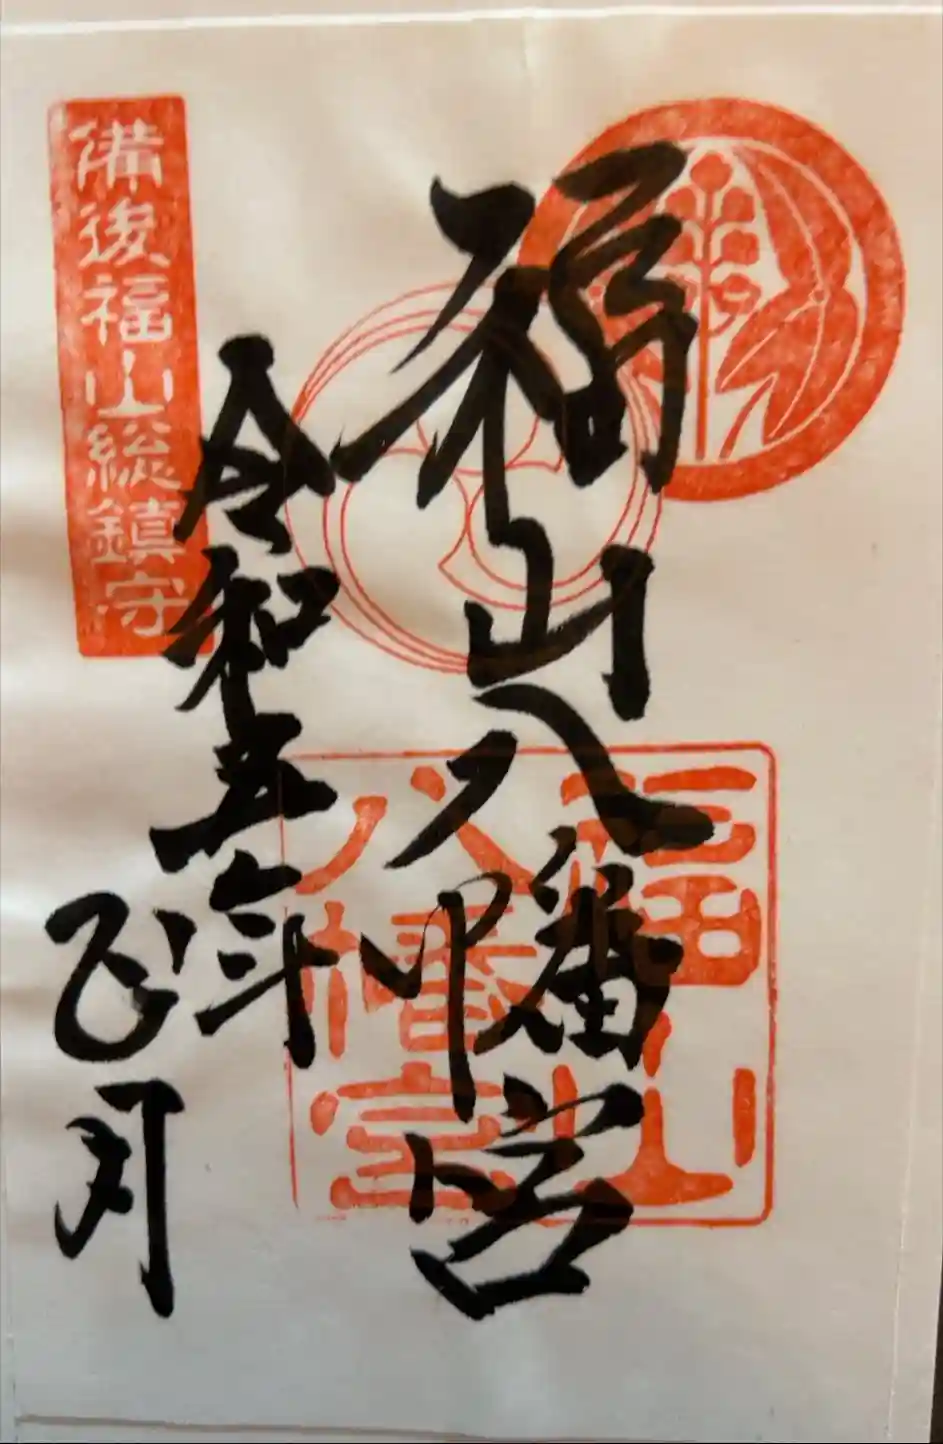 福山八幡宮
福山
八幡宮
令和五年
正月
備後福山総鎮守